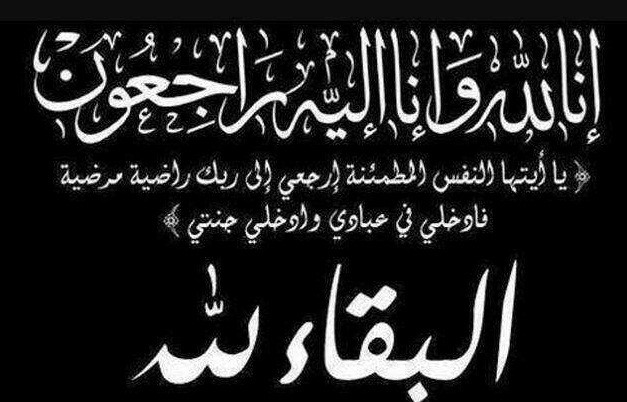 إنا لله وإنا إليه راجعون
﴿ يا أيتها النفس المطمئنة إرجعي إلى ربك راضية مرضية
فادخلي في عبادي وادخلي جنتي ﴾
البقاء لله